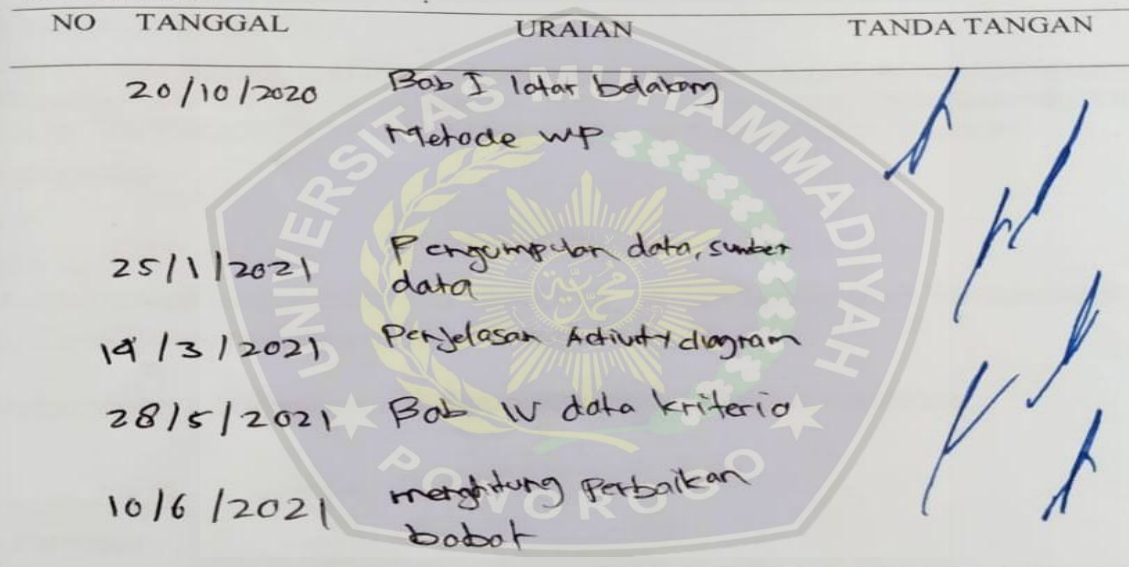 NO TANGGAL URAIAN TANDA TANGAN
20/10/2020 Bab I latar belakang
Metode WP
25/1/2021 Pengumpulan data, sumber
data
14/3/2021 Penjelasan Activity diagram
28/5/2021 Bab IV data kriteria
10/6/2021 menghitung Perbaikan
bobot
UNIVERSITAS MUHAMMADIYAH
PONOROGO